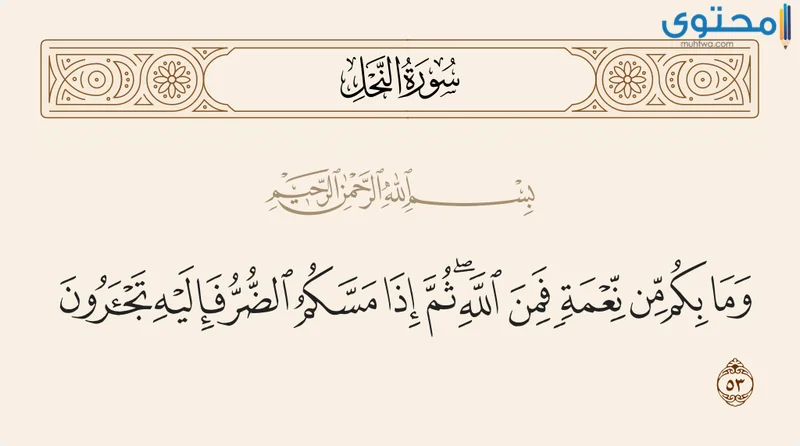 محتوى
muhtwa.com
سُورَةُ النَّحْلِ
بِسْمِ ٱللَّهِ ٱلرَّحْمَٰنِ ٱلرَّحِيمِ
وَمَا بِكُم مِّن نِّعْمَةٍ فَمِنَ ٱللَّهِۖ ثُمَّ إِذَا مَسَّكُمُ ٱلضُّرُّ فَإِلَيْهِ تَجْـَٔرُونَ
٥٣